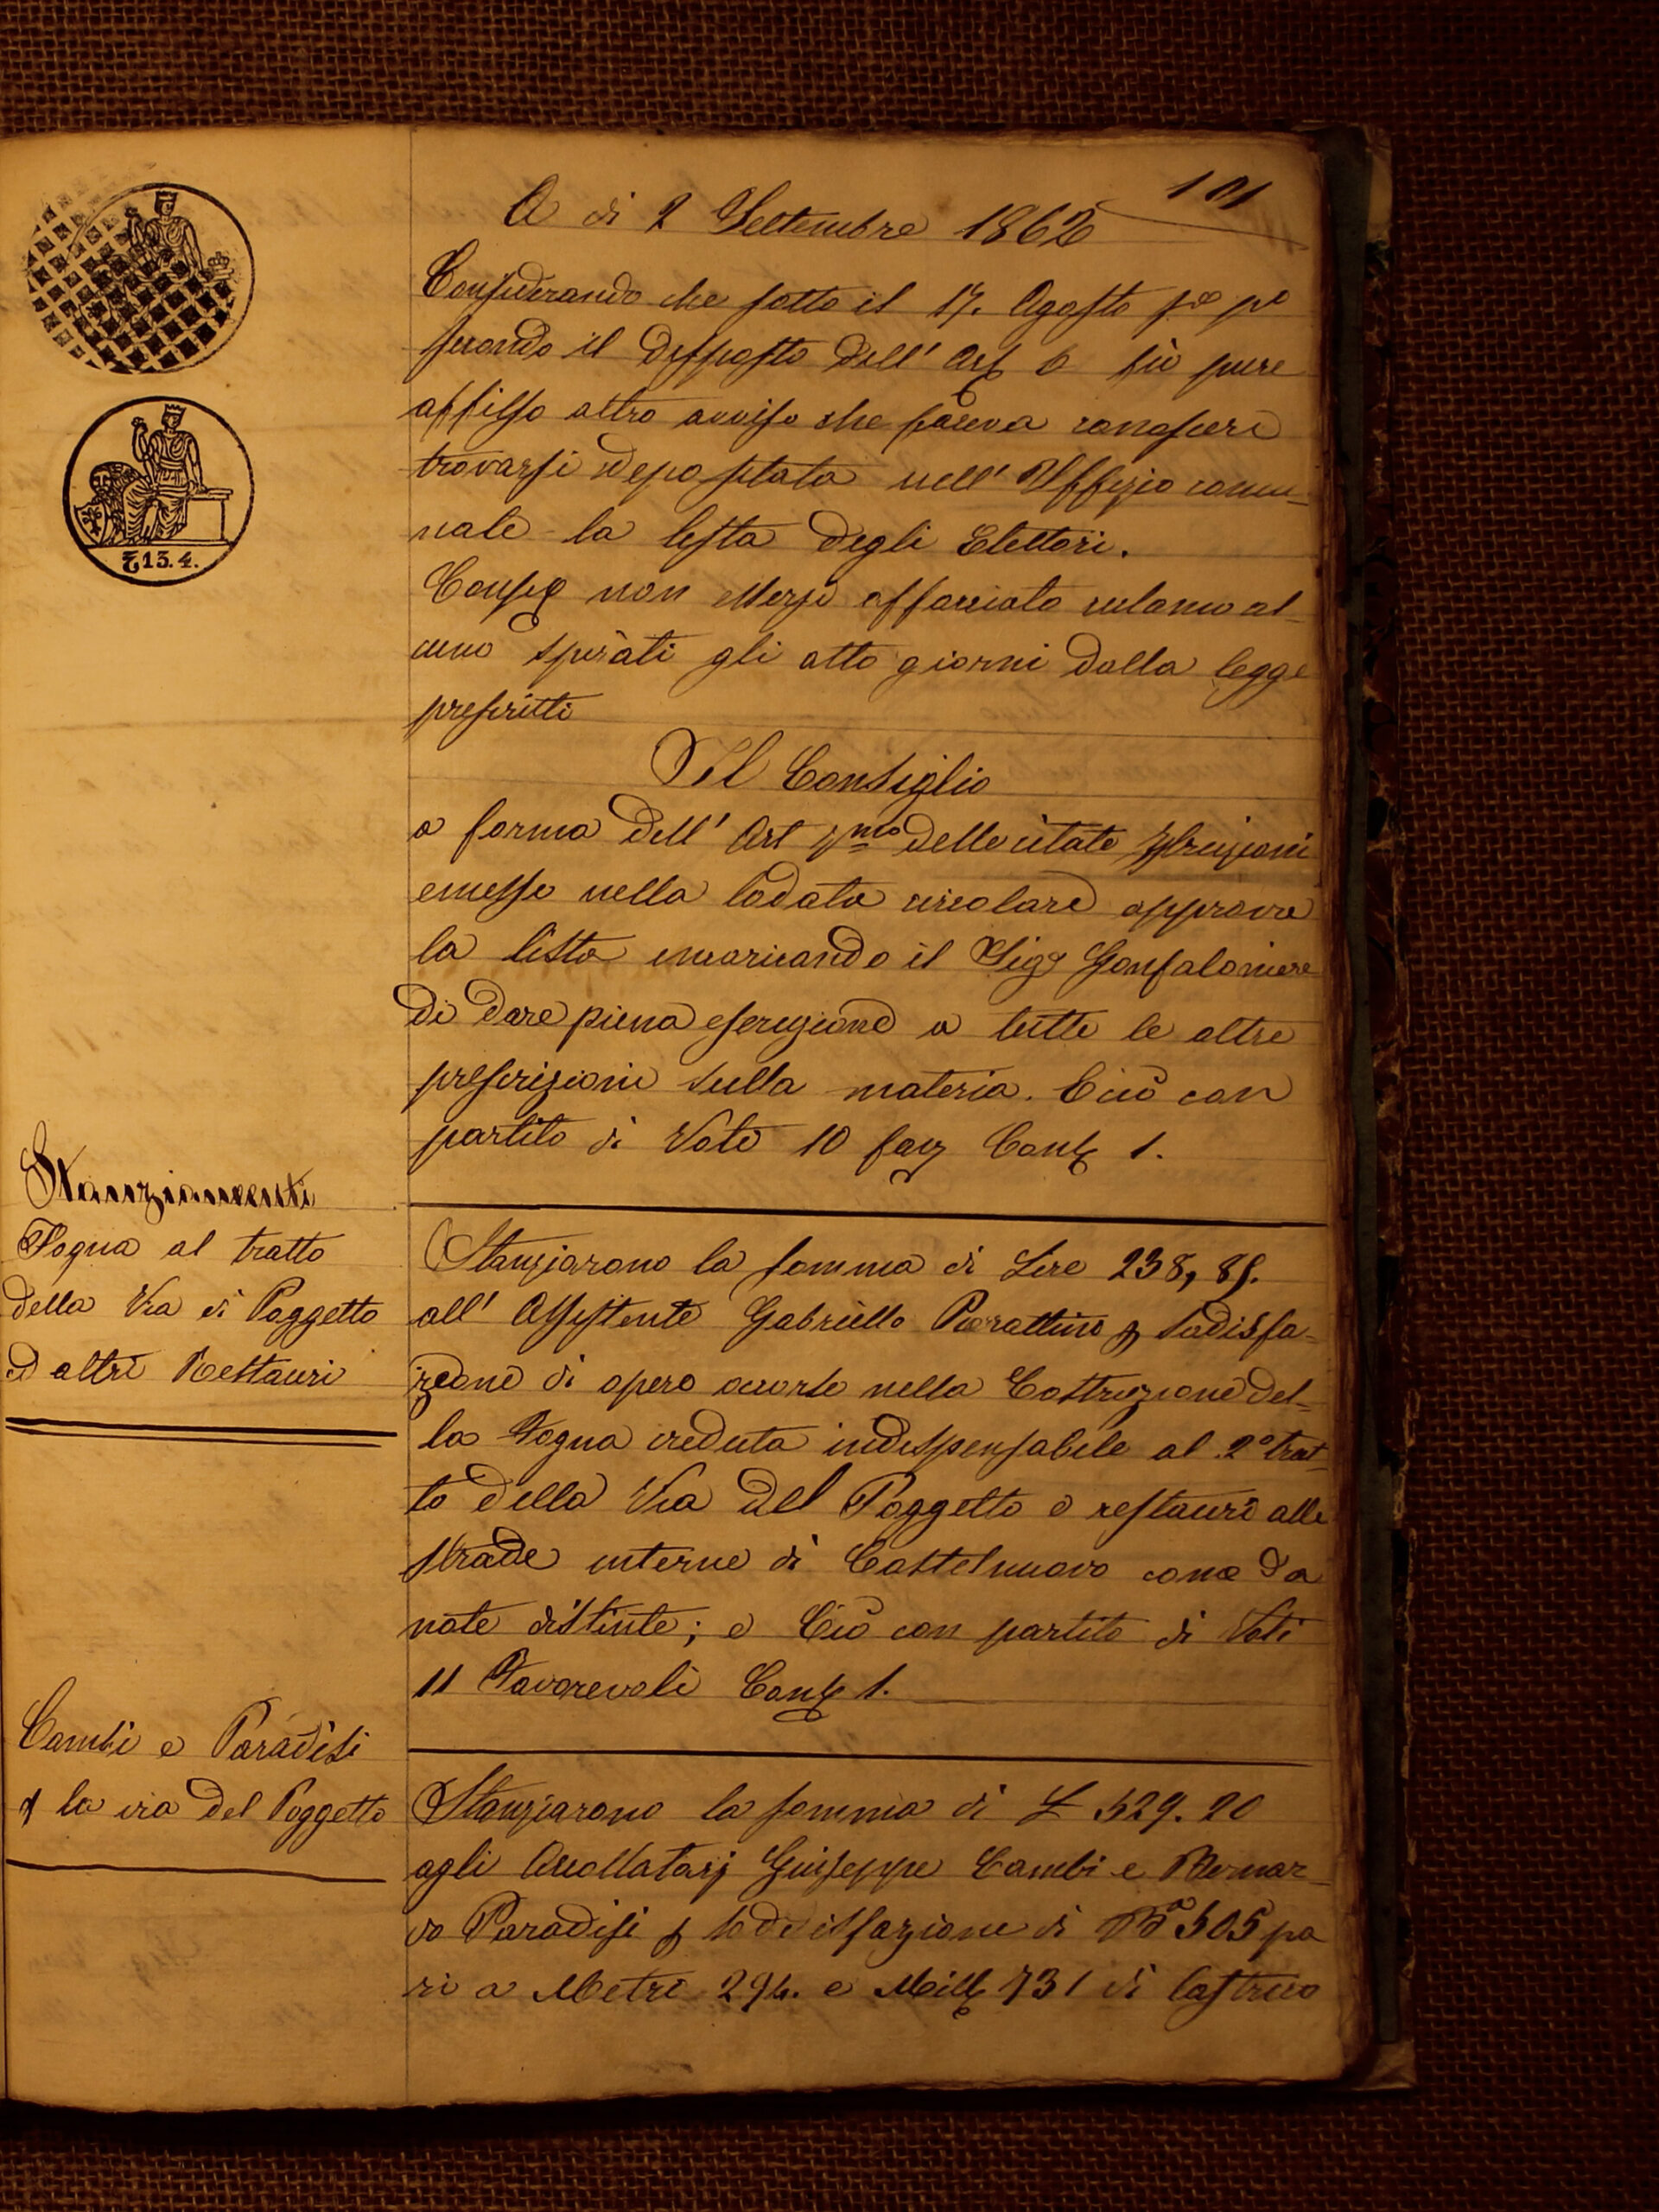 101
A di 2 Settembre 1862
Considerando che sotto il 17. Agosto po po
secondo il disposto dell' Art 6 fù pure
affisso altro avviso che faceva conoscere
trovarsi depositata nell' Uffizio comu-
nale la lista degli Elettori.
Consid non essersi affacciato reclamo al-
cuno spirati gli otto giorni dalla legge
prescritti
Il Consiglio
a forma dell' Art pmo delle citate Istruzioni
emesse nella lodata circolare approva
la lista incaricando il Sigr Gonfaloniere
di dare piena esecuzione a tutte le altre
prescrizioni sulla materia. Ciò con
partito di Voti 10 fav Cont 1.
Stanziamenti
Fogna al tratto
della Via di Poggetto
ed altri Restauri
Stanziarono la somma di Lire 238,85.
all' Assistente Gabriello Pierattini p sodisfa-
zione di opere occorse nella Costruzione del-
la Fogna creduta indispensabile al 2º trat-
to della Via del Poggetto e restauri alle
strade interne di Castelnuovo come da
note distinte; e Ciò con partito di Voti
11 Favorevoli Cont 1.
Cambi e Paradisi
p la via del Poggetto
Stanziarono la somma di £ 529.20
agli Accollatarj Giuseppe Cambi e Bernar-
do Paradisi p sodisfazione di Ba 505 pa
ri a Metri 294. e Mill 731 di lastrico
₤ 13.4.